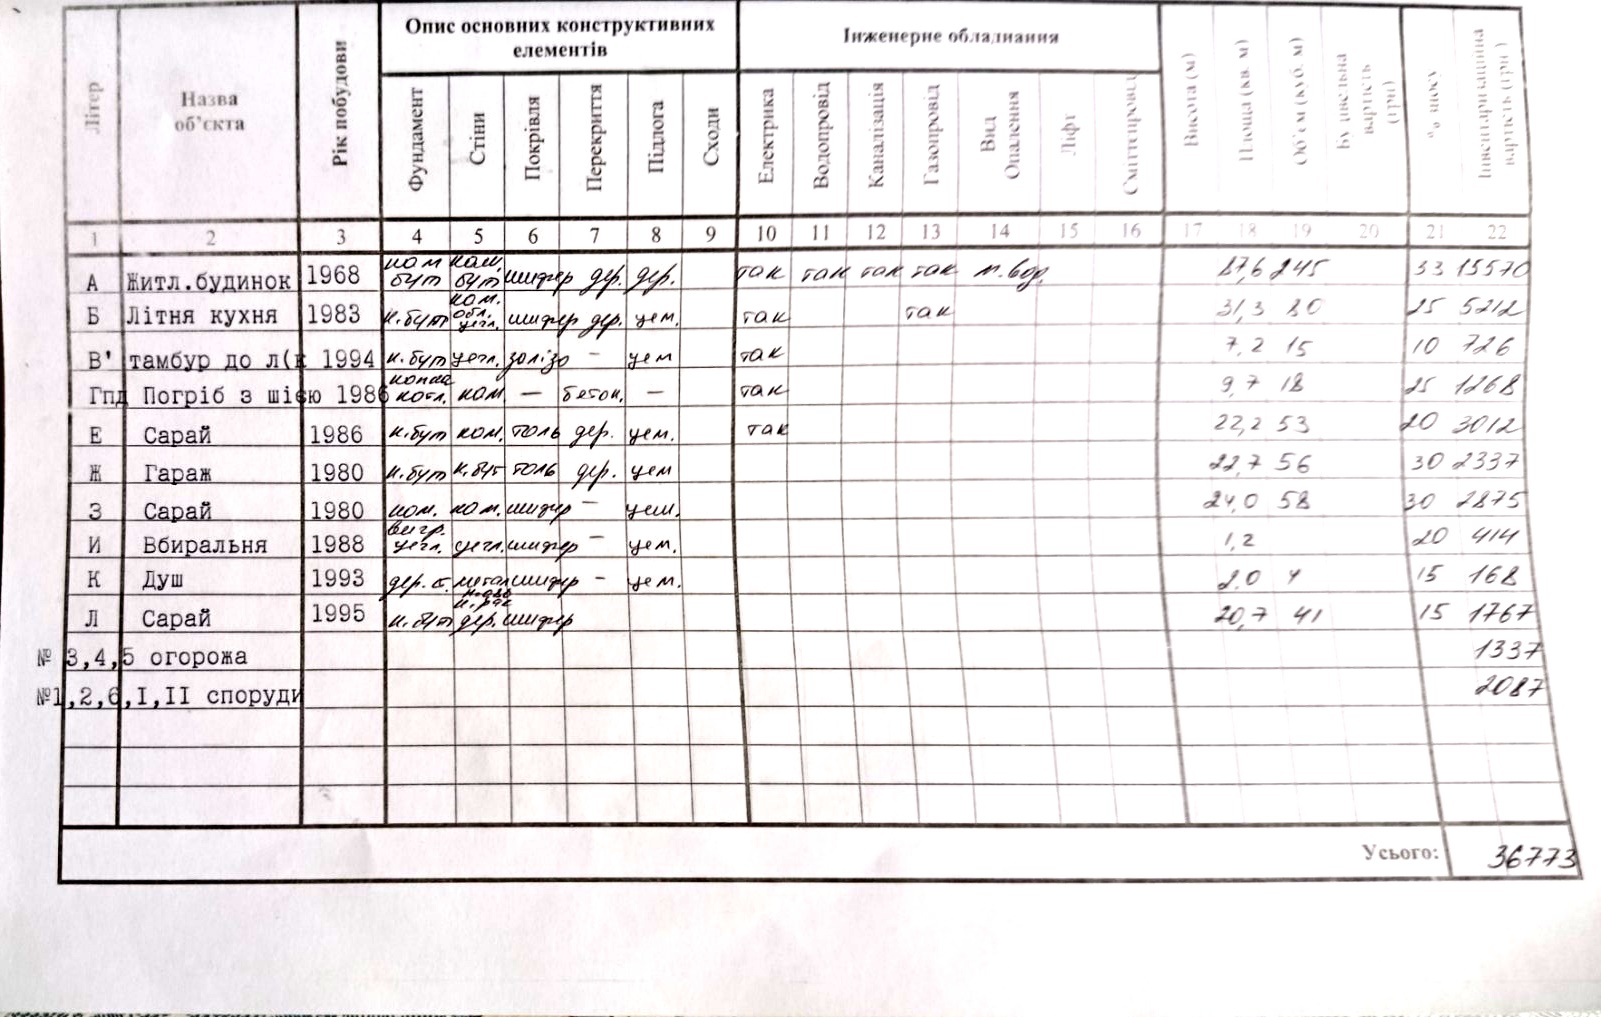 Опис основних конструктивних елементів Інженерне обладнання
Літер Назва об'єкта Рік побудови Фундамент Стіни Покрівля Перекриття Підлога Сходи Електрика Водопровід Каналізація Газопровід Вид Опалення Ліфт Сміттєпровід Висота (м) Площа (кв. м) Об'єм (куб. м) Будівельна вартість (грн) % зносу Інвентаризаційна вартість (грн)
1 2 3 4 5 6 7 8 9 10 11 12 13 14 15 16 17 18 19 20 21 22
А Житл.будинок 1968 кам бут кам. бут шифер дер. дер. так так так так м.вод. 87,6 245 33 15570
Б Літня кухня 1983 к.бут кам. обл. цегл. шифер дер. цем. так так 31,3 80 25 5212
В' тамбур до л(к 1994 к.бут цегл. залізо – цем так 7,2 15 10 726
Гпд Погріб з шією 1986 котл. кам – бетон. – так 9,7 18 25 1268
Е Сарай 1986 к.бут кам. толь дер. цем. так 22,2 53 20 3012
Ж Гараж 1980 к.бут к.бут толь дер. цем 22,7 56 30 2337
З Сарай 1980 кам. кам. шифер – цем. 24,0 58 30 2875
И Вбиральня 1988 вигр. цегл. цегл. шифер – цем. 1,2 20 414
К Душ 1993 дер.с. метал шифер – цем. 2.0 4 15 168
Л Сарай 1995 к.бут дер. шифер 20,7 41 15 1767
№ 3,4,5 огорожа 1337
№1,2,6,I,II споруди 2087
Усього: 36773